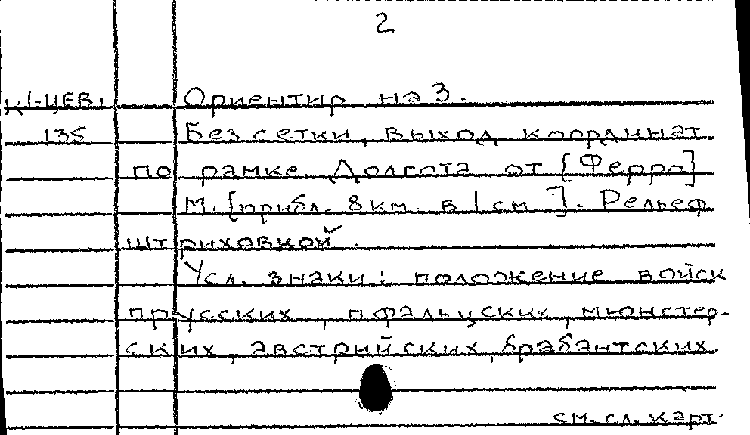 2
К1-ЦЕВ. Ориентир на З.
135 Без сетки, выход координат
по рамке Долгота от [Ферро]
М. [прибл. 8 км. в 1 см]. Рельеф
штриховкой.
Усл. знаки: положение войск
прусских, пфальцских, мюнстер-
ских, австрийских, брабантских
см. сл. карт.